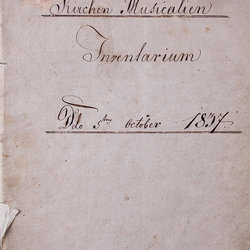 Kirchen Musicalien
Inventarium
Dto 5ten October 1837.